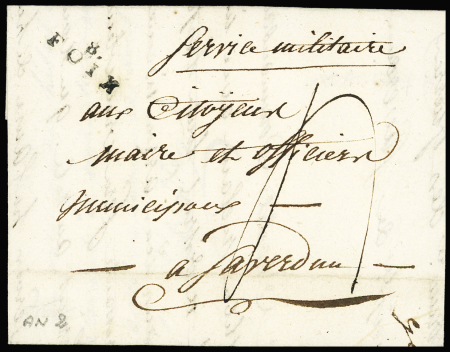 8.
FOIX
Service militaire
aux Citoyens
maire et officiers
municipaux
a Saverdun
AN 2